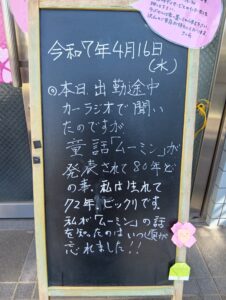 令和7年4月16日
(水)
◎本日出勤途中
カーラジオで聞い
たのですが
童話「ムーミン」が
発表されて80年ど
の事、私は生れて
72年、ビックリです。
私が「ムーミン」の話
を知ったのはいつ
忘れました!!